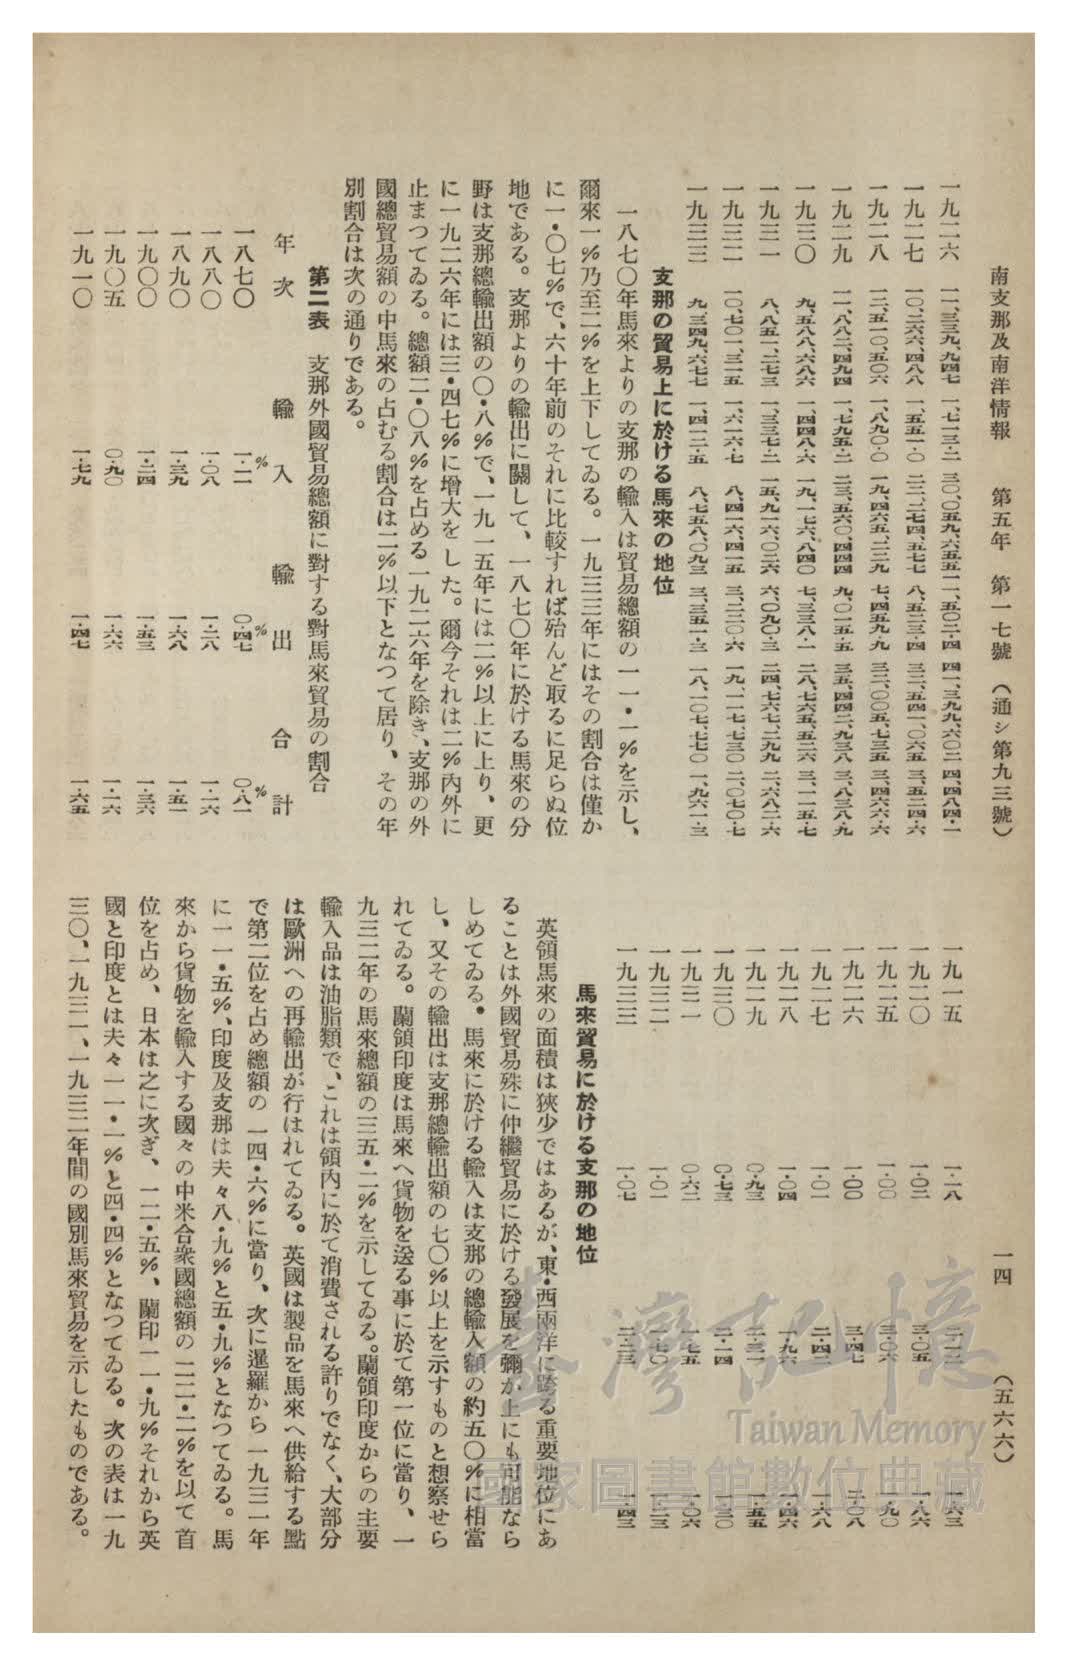 南支那及南洋情報　第五年　第一七號　（通シ第九三號）　一四　（五六六）
一九二六　一一、三三九、九四七　一、七一三・二　三〇、〇五九、六五五　二、五〇二・四　四一、三九九、六〇二　四、四八四・一
一九二七　一〇、二六六、四八八　一、五五一・〇　二二、二七四、五七七　八、五二三・四　三二、五四一、〇六五　三、五二四・六
一九二八　一二、五一〇、五〇六　一、八九〇・〇　一九、四六五、二二九　七、四五九・九　三二、〇〇五、七三五　三、四六六・六
一九二九　一一、八八二、四九四　一、七九五・二　二三、五六〇、四四四　九、〇一五・五　三五、四四二、九三八　三、八三八・九
一九三〇　九、五八八、六八六　一、四四八・六　一九、一七六、八四〇　七、三三八・一　二八、七六五、五二六　三、一一五・七
一九三一　八、八五一、二七三　一、三三七・二　一五、九一六、〇二六　六、〇九〇・三　二四、七六七、二九九　二、六八二・六
一九三二　一〇、七〇一、三一五　一、六一六・七　八、四一六、四一五　三、二二〇・六　一九、一一七、七三〇　二、〇七〇・七
一九三三　九、三四九、六七七　一、四一二・五　八、七五八、〇九三　三、三五一・三　一八、一〇七、七七〇　一、九六一・三
支那の貿易上に於ける馬來の地位
一八七〇年馬來よりの支那の輸入は貿易總額の一一・一％を示し、
爾來一％乃至二％を上下してゐる。一九三三年にはその割合は僅か
に一・〇七％で、六十年前のそれに比較すれば殆んど取るに足らぬ位
地である。支那よりの輸出に關して、一八七〇年に於ける馬來の分
野は支那總輸出額の〇・八％で、一九一五年には二％以上に上り、更
に一九二六年には三・四七％に增大をした。爾今それは二％內外に
止まつてゐる。總額二・〇八％を占める一九二六年を除き、支那の外
國總貿易額の中馬來の占むる割合は二％以下となつて居り、その年
別割合は次の通りである。
第二表　支那外國貿易總額に對する對馬來貿易の割合
年次　輸入　輸出　合計
一八七〇　一・一一％　〇・四七％　〇・八一％
一八八〇　一・〇八　一・二八　一・一六
一八九〇　一・三九　一・六八　一・五一
一九〇〇　一・二四　一・五三　一・三六
一九〇五　〇・九〇　一・六六　一・一六
一九一〇　一・七九　一・四七　一・六五
一九一五　一・一八　二・一二　一・六三
一九二〇　一・〇二　三・〇五　一・八六
一九二五　一・〇〇　三・〇六　一・九〇
一九二六　一・〇〇　三・四七　二・〇八
一九二七　一・〇一　二・四二　一・六八
一九二八　一・〇四　一・九六　一・四六
一九二九　〇・九三　二・三一　一・五五
一九三〇　〇・七三　二・一四　一・三〇
一九三一　〇・六二　一・七五　一・〇六
一九三二　一・〇一　一・七〇　一・二三
一九三三　一・〇七　二・二三　一・四三
馬來貿易に於ける支那の地位
英領馬來の面積は狹少ではあるが、東・西兩洋に跨る重要地位にあ
ることは外國貿易殊に仲繼貿易に於ける發展を彌が上にも可能なら
しめてゐる・馬來に於ける輸入は支那の總輸入額の約五〇％に相當
し、又その輸出は支那總輸出額の七〇％以上を示すものと想察せら
れてゐる。蘭領印度は馬來へ貨物を送る事に於て第一位に當り、一
九三二年の馬來總額の三五・二％を示してゐる。蘭領印度からの主要
輸入品は油脂類で、これは領內に於て消費される許りでなく、大部分
は歐洲への再輸出が行はれてゐる。英國は製品を馬來へ供給する點
で第二位を占め總額の一四・六％に當り、次に暹羅から一九三一年
に一一・五％、印度及支那は夫々八・九％と五・九％となつてゐる。馬
來から貨物を輸入する國々の中米合衆國總額の二二・二％を以て首
位を占め、日本は之に次ぎ、一二・五％、蘭印一一・九％それから英
國と印度とは夫々一一・一％と四・四％となつてゐる。次の表は一九
三〇、一九三一、一九三二年間の國別馬來貿易を示したものである。
臺灣記憶
Taiwan Memory
國家圖書館數位典藏